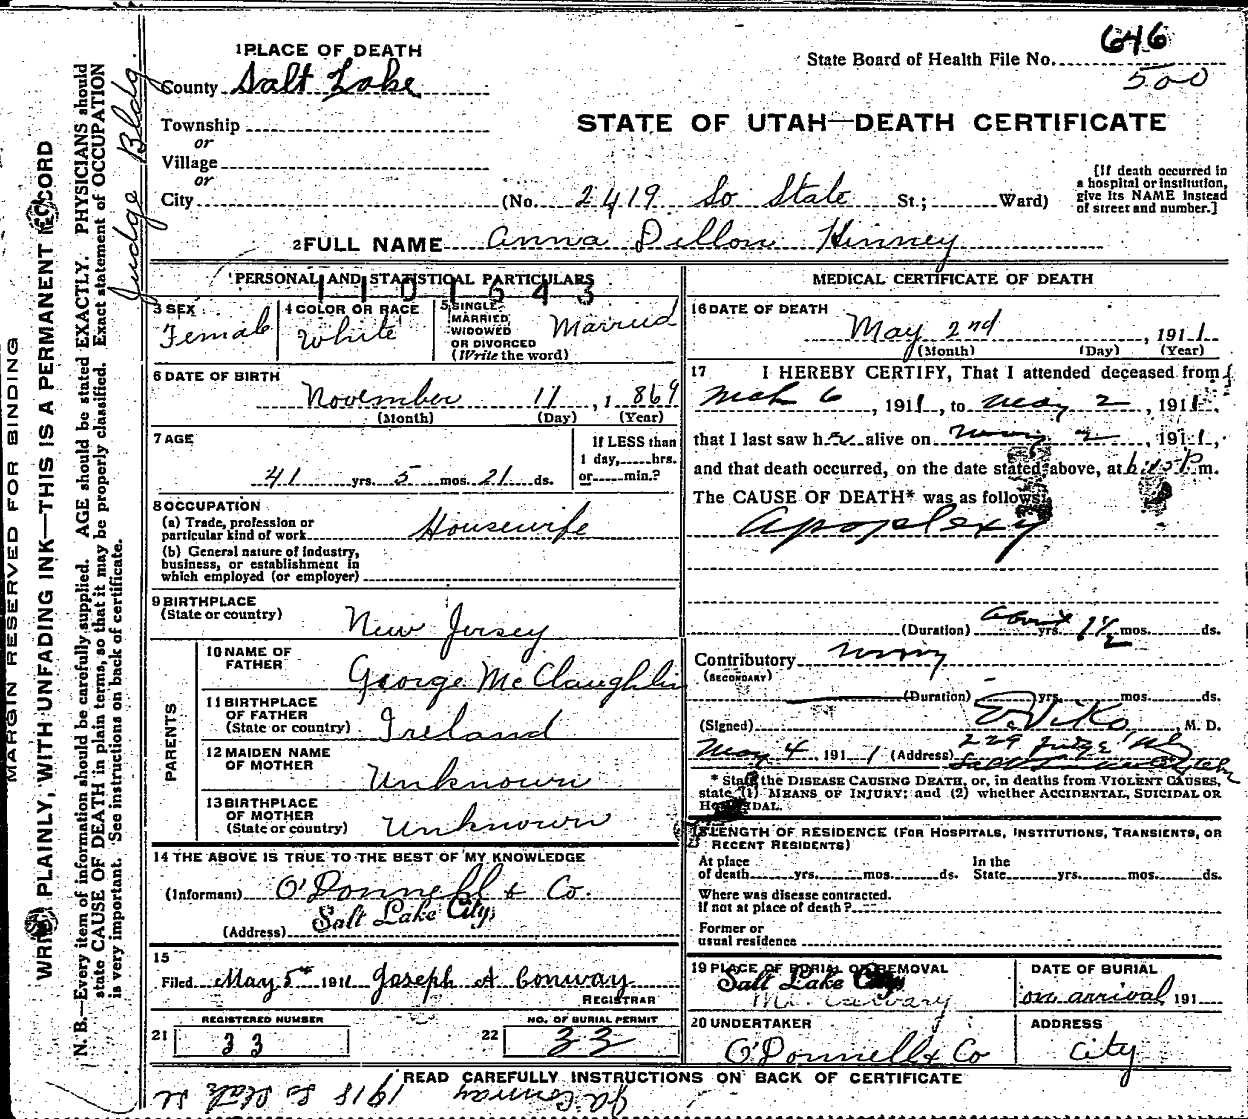 646
1 PLACE OF DEATH
State Board of Health File No.
500
County Salt Lake
Township
or
STATE OF UTAH—DEATH CERTIFICATE
Village
or
City
(No. 2419 So State St.; Ward)
[If death occurred in
a hospital or institution,
give its NAME instead
of street and number.]
2 FULL NAME Anna Dillon Kinney
PERSONAL AND STATISTICAL PARTICULARS
1101643
3 SEX
Female
4 COLOR OR RACE
White
5 SINGLE,
MARRIED,
WIDOWED
OR DIVORCED
(Write the word)
Married
6 DATE OF BIRTH
November 11, 1869
(Month) (Day) (Year)
7 AGE
41 yrs. 5 mos. 21 ds.
If LESS than
1 day, hrs.
or min.?
8 OCCUPATION
(a) Trade, profession or
particular kind of work Housewife
(b) General nature of industry,
business, or establishment in
which employed (or employer)
9 BIRTHPLACE
(State or country) New Jersey
PARENTS
10 NAME OF
FATHER George McClaughlin
11 BIRTHPLACE
OF FATHER
(State or country) Ireland
12 MAIDEN NAME
OF MOTHER Unknown
13 BIRTHPLACE
OF MOTHER
(State or country) Unknown
14 THE ABOVE IS TRUE TO THE BEST OF MY KNOWLEDGE
(Informant) O'Donnell & Co.
(Address) Salt Lake City,
15
Filed May 5th 1911 Joseph A Conway
REGISTRAR
21 REGISTERED NUMBER
33
22 NO. OF BURIAL PERMIT
33
MEDICAL CERTIFICATE OF DEATH
16 DATE OF DEATH
May 2nd, 1911
(Month) (Day) (Year)
17 I HEREBY CERTIFY, That I attended deceased from
Mch 6, 1911, to May 2, 1911,
that I last saw her alive on May 2, 1911,
and that death occurred, on the date stated above, at 6:15 P.m.
The CAUSE OF DEATH* was as follows:
Apoplexy
(Duration) about yrs. 1½ mos. ds.
Contributory
(SECONDARY)
(Duration) yrs. mos. ds.
(Signed) E. Viko, M. D.
May 4, 1911 (Address) 229 Judge Bldg
* State the DISEASE CAUSING DEATH, or, in deaths from VIOLENT CAUSES,
state (1) MEANS OF INJURY; and (2) whether ACCIDENTAL, SUICIDAL OR
HOMICIDAL.
18 LENGTH OF RESIDENCE (FOR HOSPITALS, INSTITUTIONS, TRANSIENTS, OR
RECENT RESIDENTS)
At place
of death yrs. mos. ds.
In the
State yrs. mos. ds.
Where was disease contracted.
If not at place of death?
Former or
usual residence
19 PLACE OF BURIAL OR REMOVAL
Salt Lake City
Mt. Calvary
DATE OF BURIAL
on arrival, 191
20 UNDERTAKER
O'Donnell & Co
ADDRESS
City
READ CAREFULLY INSTRUCTIONS ON BACK OF CERTIFICATE
J.A. Conway 1918 So State St
MARGIN RESERVED FOR BINDING
WRITE PLAINLY, WITH UNFADING INK—THIS IS A PERMANENT RECORD
N. B.—Every item of information should be carefully supplied. AGE should be stated EXACTLY. PHYSICIANS should
state CAUSE OF DEATH in plain terms, so that it may be properly classified. Exact statement of OCCUPATION
is very important. See instructions on back of certificate.
Judge Bldg.